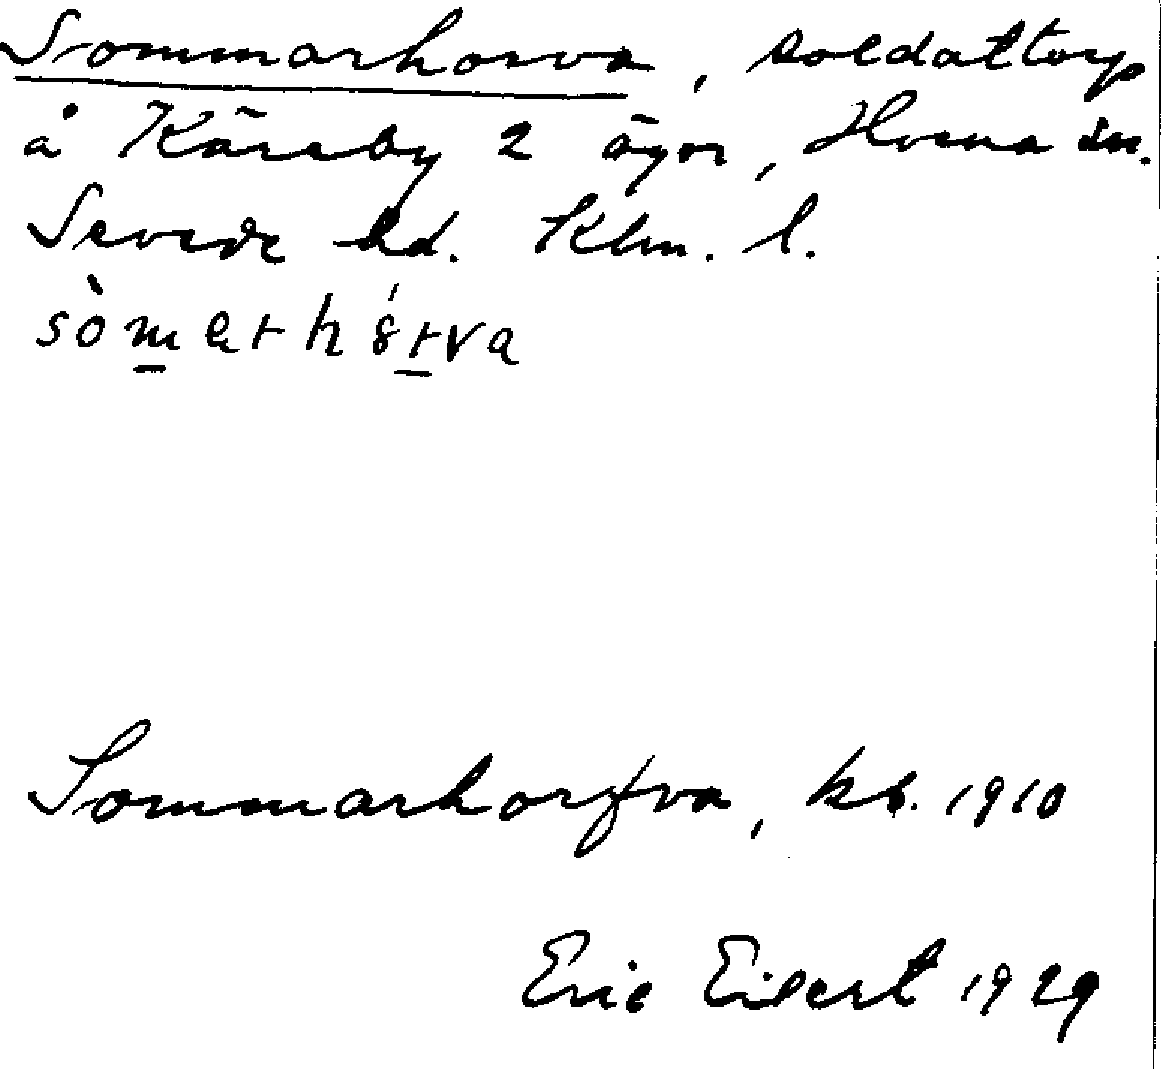 Sommarhorva, soldattorp
å Kärrby 2 ägor, Horna sn.
Sevede hd. Klm. l.
Sommarhorfva, kb. 1910
Eric Eilert 1929